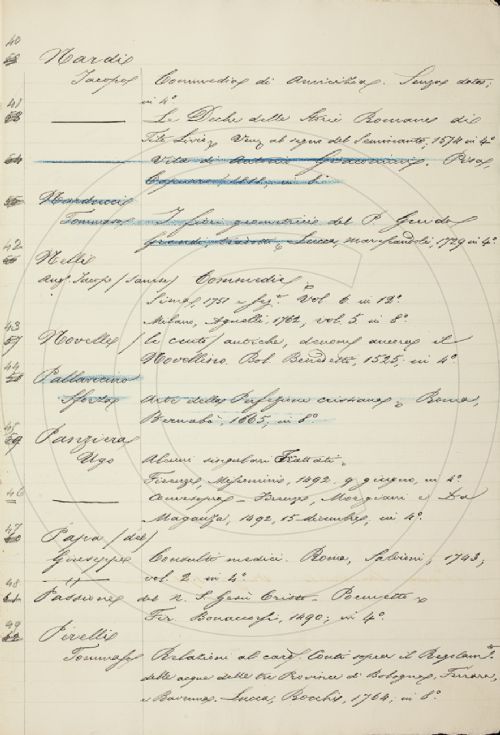 40
Nardi
Jacopo Commedia di Amicitia. Senza data;
in 4°
41
Le Deche delle Storie Romane di
Tito Livio, Ven. al segno del Seminante, 1574 in 4°
Vita di Antonio Giacomini. Pisa,
Capurro, 1818, in 8°
Narducci
Tommaso I fiori geometrici del P. Guido
Grandi, Lucca, Marescandoli, 1729 in 4°
42
Nelli
Jacopo (Sanese) Commedie
1751 e seg. Vol. 6 in 12°
Milano, Agnelli, 1762, vol. 5 in 8°
43
57 Novelle (le cento) antiche, denom. ancora il
Novellino. Bol. Benedetti, 1525, in 4°
44
Pallavicino
Sforza Arte della Perfezione cristiana. Roma,
Bernabò, 1665, in 8°
45
Panziera
Ugo Alcuni singulari Trattati.
Firenze, Miscomini, 1492. 9 giugno, in 4°
46
Firenze, Morgiani e Da
Maganza, 1492, 15 dicembre, in 4°
47
60 Papa (del)
Giuseppe Consulti medici. Roma, Salvioni, 1743;
vol. 2 in 4°
48
61 Passione del N. S. Gesù Cristo. Poemetto
Fir Bonaccorsi, 1490; in 4°
49
62 Pirelli
Tommaso Relazioni al card. Conti sopra il Regolam.°
delle acque delle tre Provincie di Bologna, Ferrara,
e Ravenna. Lucca, Rocchi, 1764, in 8°